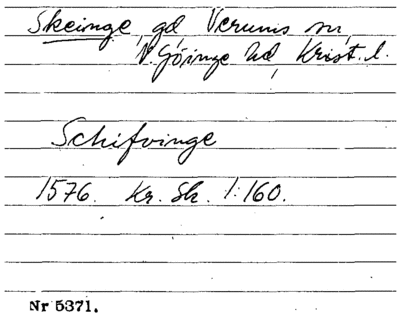 Skeinge, gd, Verums sn,
V. Göinge hd, Krist. l.
Schifvinge
1576. Kr. Sk. 1:160.
Nr 5371.